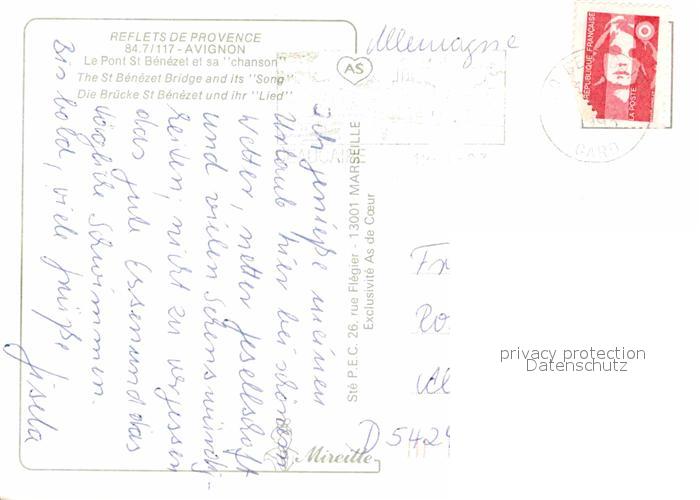 REFLETS DE PROVENCE
84.7/117 - AVIGNON
Le Pont St Bénézet et sa "chanson"
The St Bénézet Bridge and its "Song"
Die Brücke St Bénézet und ihr "Lied"
AS
Allemagne
RÉPUBLIQUE FRANÇAISE
LA POSTE
GARD
Ich genieße meinen
Urlaub hier bei schönem
Wetter, netter Gesellschaft
und vielen Sehenswürdig-
keiten, nicht zu vergessen
das gute Essen und das
tägliche Schwimmen.
Bis bald, viele Grüße Gisela
Sté P.E.C. 26, rue Flégier - 13001 MARSEILLE
Exclusivité As de Cœur
Mireille
D 5424
privacy protection
Datenschutz